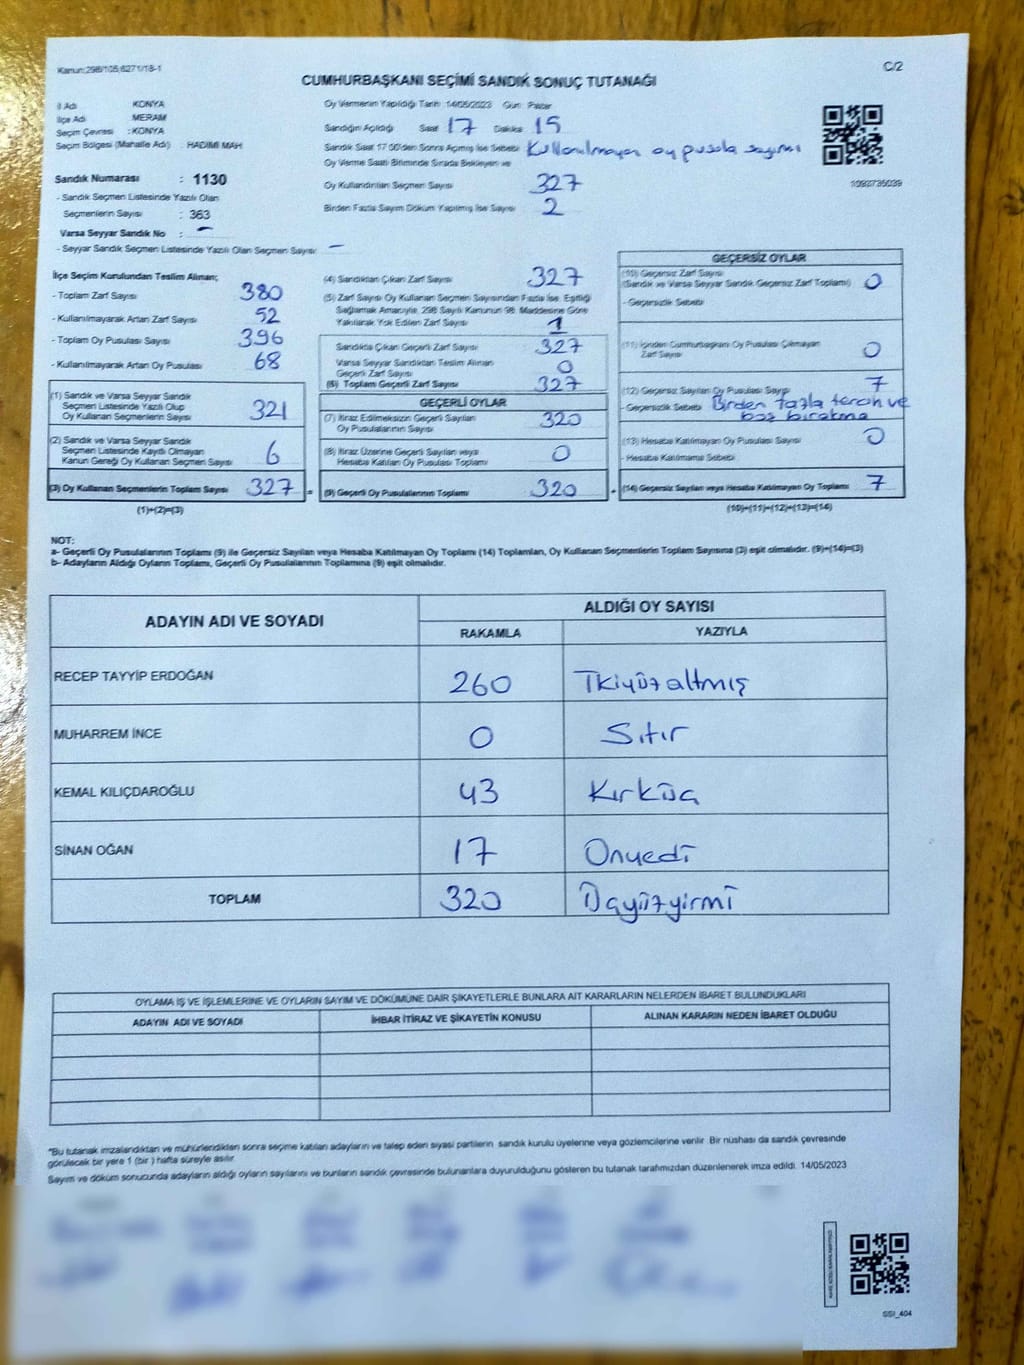 Kanun:298/105;6271/18-1
C/2
CUMHURBAŞKANI SEÇİMİ SANDIK SONUÇ TUTANAĞI
İl Adı : KONYA
İlçe Adı : MERAM
Seçim Çevresi : KONYA
Seçim Bölgesi (Mahalle Adı) : HADİMİ MAH
Sandık Numarası : 1130
- Sandık Seçmen Listesinde Yazılı Olan
Seçmenlerin Sayısı : 363
Varsa Seyyar Sandık No : -
- Seyyar Sandık Seçmen Listesinde Yazılı Olan Seçmen Sayısı: -
Oy Vermenin Yapıldığı Tarih :14/05/2023 Gün : Pazar
Sandığın Açıldığı Saat 17 Dakika 15
Sandık Saat 17:00'den Sonra Açılmış İse Sebebi Kullanılmayan oy pusula sayımı
Oy Verme Saati Bitiminde Sırada Bekleyen ve
Oy Kullandırılan Seçmen Sayısı 327
Birden Fazla Sayım Döküm Yapılmış İse Sayısı 2
1092735039
İlçe Seçim Kurulundan Teslim Alınan;
- Toplam Zarf Sayısı 380
- Kullanılmayarak Artan Zarf Sayısı 52
- Toplam Oy Pusulası Sayısı 396
- Kullanılmayarak Artan Oy Pusulası 68
(1) Sandık ve Varsa Seyyar Sandık
Seçmen Listesinde Yazılı Olup
Oy Kullanan Seçmenlerin Sayısı 321
(2) Sandık ve Varsa Seyyar Sandık
Seçmen Listesinde Kayıtlı Olmayan
Kanun Gereği Oy Kullanan Seçmen Sayısı 6
(3) Oy Kullanan Seçmenlerin Toplam Sayısı 327 =
(1)+(2)=(3)
(4) Sandıktan Çıkan Zarf Sayısı 327
(5) Zarf Sayısı Oy Kullanan Seçmen Sayısından Fazla İse, Eşitliği
Sağlamak Amacıyla, 298 Sayılı Kanunun 98. Maddesine Göre
Yakılarak Yok Edilen Zarf Sayısı 1
Sandıkta Çıkan Geçerli Zarf Sayısı 327
Varsa Seyyar Sandıktan Teslim Alınan
Geçerli Zarf Sayısı 0
(6) Toplam Geçerli Zarf Sayısı 327
GEÇERLİ OYLAR
(7) İtiraz Edilmeksizin Geçerli Sayılan
Oy Pusulalarının Sayısı 320
(8) İtiraz Üzerine Geçerli Sayılan veya
Hesaba Katılan Oy Pusulası Toplamı 0
(9) Geçerli Oy Pusulalarının Toplamı 320 +
GEÇERSİZ OYLAR
(10) Geçersiz Zarf Sayısı
(Sandık ve Varsa Seyyar Sandık Geçersiz Zarf Toplamı) 0
- Geçersizlik Sebebi
(11) İçinden Cumhurbaşkanı Oy Pusulası Çıkmayan
Zarf Sayısı 0
(12) Geçersiz Sayılan Oy Pusulası Sayısı 7
- Geçersizlik Sebebi Birden fazla tercih ve
boş bırakma
(13) Hesaba Katılmayan Oy Pusulası Sayısı 0
- Hesaba Katılmama Sebebi
(14) Geçersiz Sayılan veya Hesaba Katılmayan Oy Toplamı 7
(10)+(11)+(12)+(13)=(14)
NOT:
a- Geçerli Oy Pusulalarının Toplamı (9) ile Geçersiz Sayılan veya Hesaba Katılmayan Oy Toplamı (14) Toplamları, Oy Kullanan Seçmenlerin Toplam Sayısına (3) eşit olmalıdır. (9)+(14)=(3)
b- Adayların Aldığı Oyların Toplamı, Geçerli Oy Pusulalarının Toplamına (9) eşit olmalıdır.
ADAYIN ADI VE SOYADI
ALDIĞI OY SAYISI
RAKAMLA YAZIYLA
RECEP TAYYİP ERDOĞAN 260 İkiyüzaltmış
MUHARREM İNCE 0 Sıfır
KEMAL KILIÇDAROĞLU 43 Kırküç
SİNAN OĞAN 17 Onyedi
TOPLAM 320 Üçyüzyirmi
OYLAMA İŞ VE İŞLEMLERİNE VE OYLARIN SAYIM VE DÖKÜMÜNE DAİR ŞİKAYETLERLE BUNLARA AİT KARARLARIN NELERDEN İBARET BULUNDUKLARI
ADAYIN ADI VE SOYADI İHBAR İTİRAZ VE ŞİKAYETİN KONUSU ALINAN KARARIN NEDEN İBARET OLDUĞU
*Bu tutanak imzalandıktan ve mühürlendikten sonra seçime katılan adayların ve talep eden siyasi partilerin sandık kurulu üyelerine veya gözlemcilerine verilir. Bir nüshası da sandık çevresinde
görülecek bir yere 1 (bir ) hafta süreyle asılır.
Sayım ve döküm sonucunda adayların aldığı oyların sayılarını ve bunların sandık çevresinde bulunanlara duyurulduğunu gösteren bu tutanak tarafımızdan düzenlenerek imza edildi. 14/05/2023
SSI_404